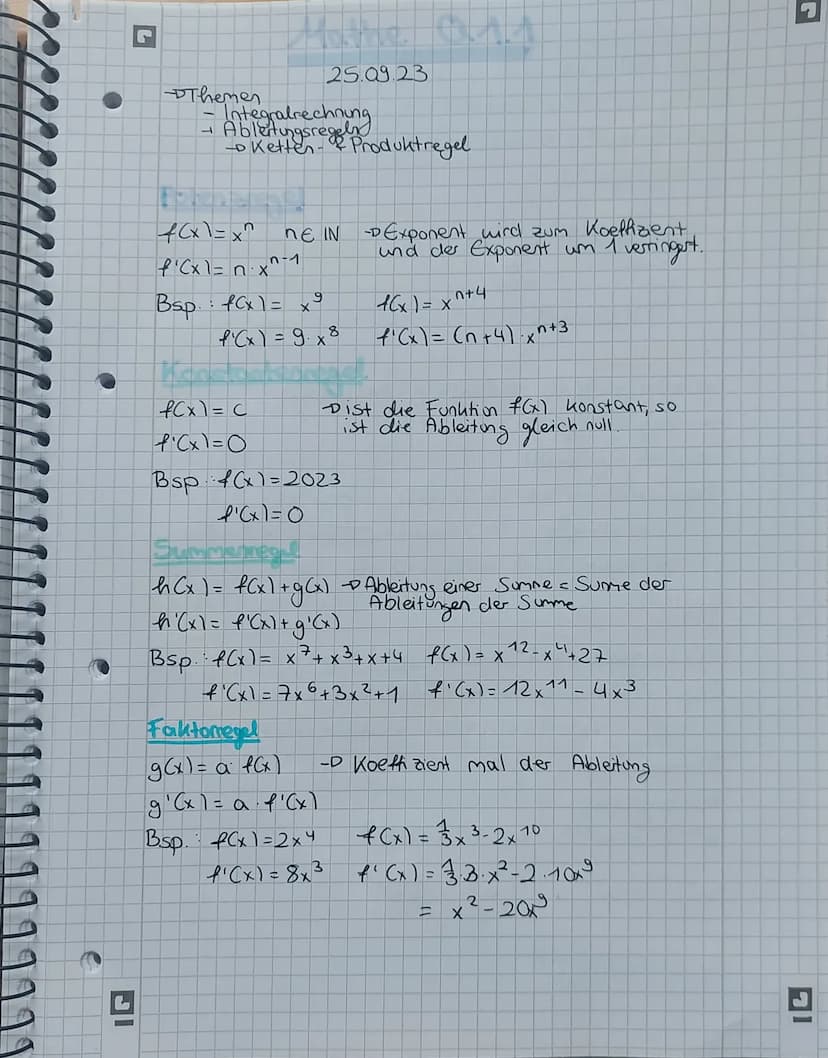 Mathe Q1.1
25.09.23
→ Themen
- Integralrechnung
→ Ableitungsregeln
→ Ketten- & Produktregel
Potenzregel
f(x) = xⁿ n ∈ ℕ → Exponent wird zum Koeffizient
und der Exponent um 1 verringert.
f'(x) = n · xⁿ⁻¹
Bsp.: f(x) = x⁹ f(x) = xⁿ⁺⁴
f'(x) = 9 · x⁸ f'(x) = (n+4) · xⁿ⁺³
Konstantenregel
f(x) = c → ist die Funktion f(x) konstant, so
ist die Ableitung gleich null.
f'(x) = 0
Bsp.: f(x) = 2023
f'(x) = 0
Summenregel
h(x) = f(x) + g(x) → Ableitung einer Summe = Summe der
Ableitungen der Summe
h'(x) = f'(x) + g'(x)
Bsp.: f(x) = x⁷ + x³ + x + 4 f(x) = x¹² - x⁴ + 27
f'(x) = 7x⁶ + 3x² + 1 f'(x) = 12x¹¹ - 4x³
Faktorregel
g(x) = a · f(x) → Koeffizient mal der Ableitung
g'(x) = a · f'(x)
Bsp.: f(x) = 2x⁴ f(x) = ⅓x³ - 2x¹⁰
f'(x) = 8x³ f'(x) = ⅓ · 3 · x² - 2 · 10x⁹
= x² - 20x⁹